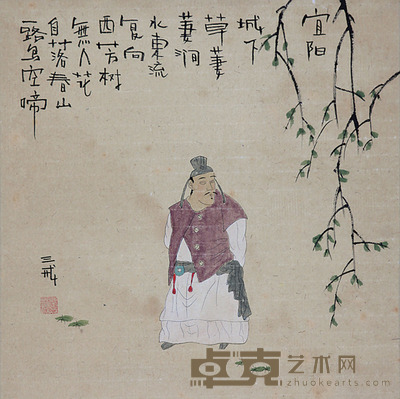 宜阳
城下
草萋
萋涧
水东流
复向
西芳树
無人花
自落春山
一路鸟空啼
三戒
卓克艺术网
zhuokearts.com